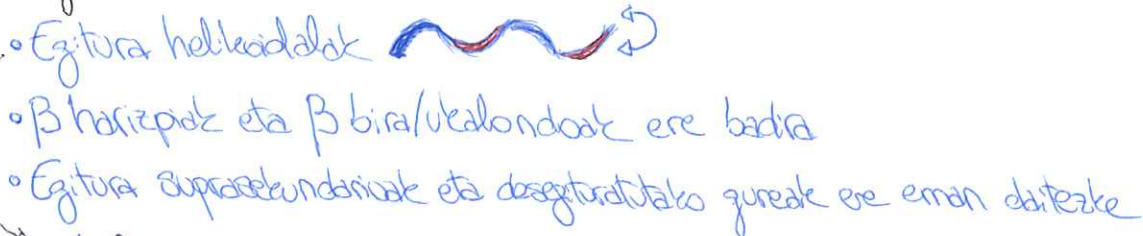 • Egitura helikoidalak
• β harizpiak eta β bira/ukalondoak ere badira
• Egitura suprasekundarioak eta desegituratutako guneak ere eman daitezke